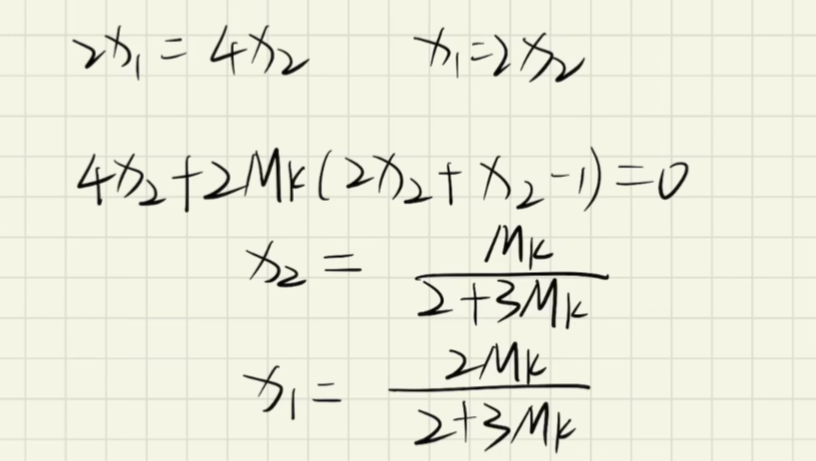 2x₁ = 4x₂ x₁ = 2x₂
4x₂ + 2Mk(2x₂ + x₂ - 1) = 0
x₂ = Mk / (2 + 3Mk)
x₁ = 2Mk / (2 + 3Mk)